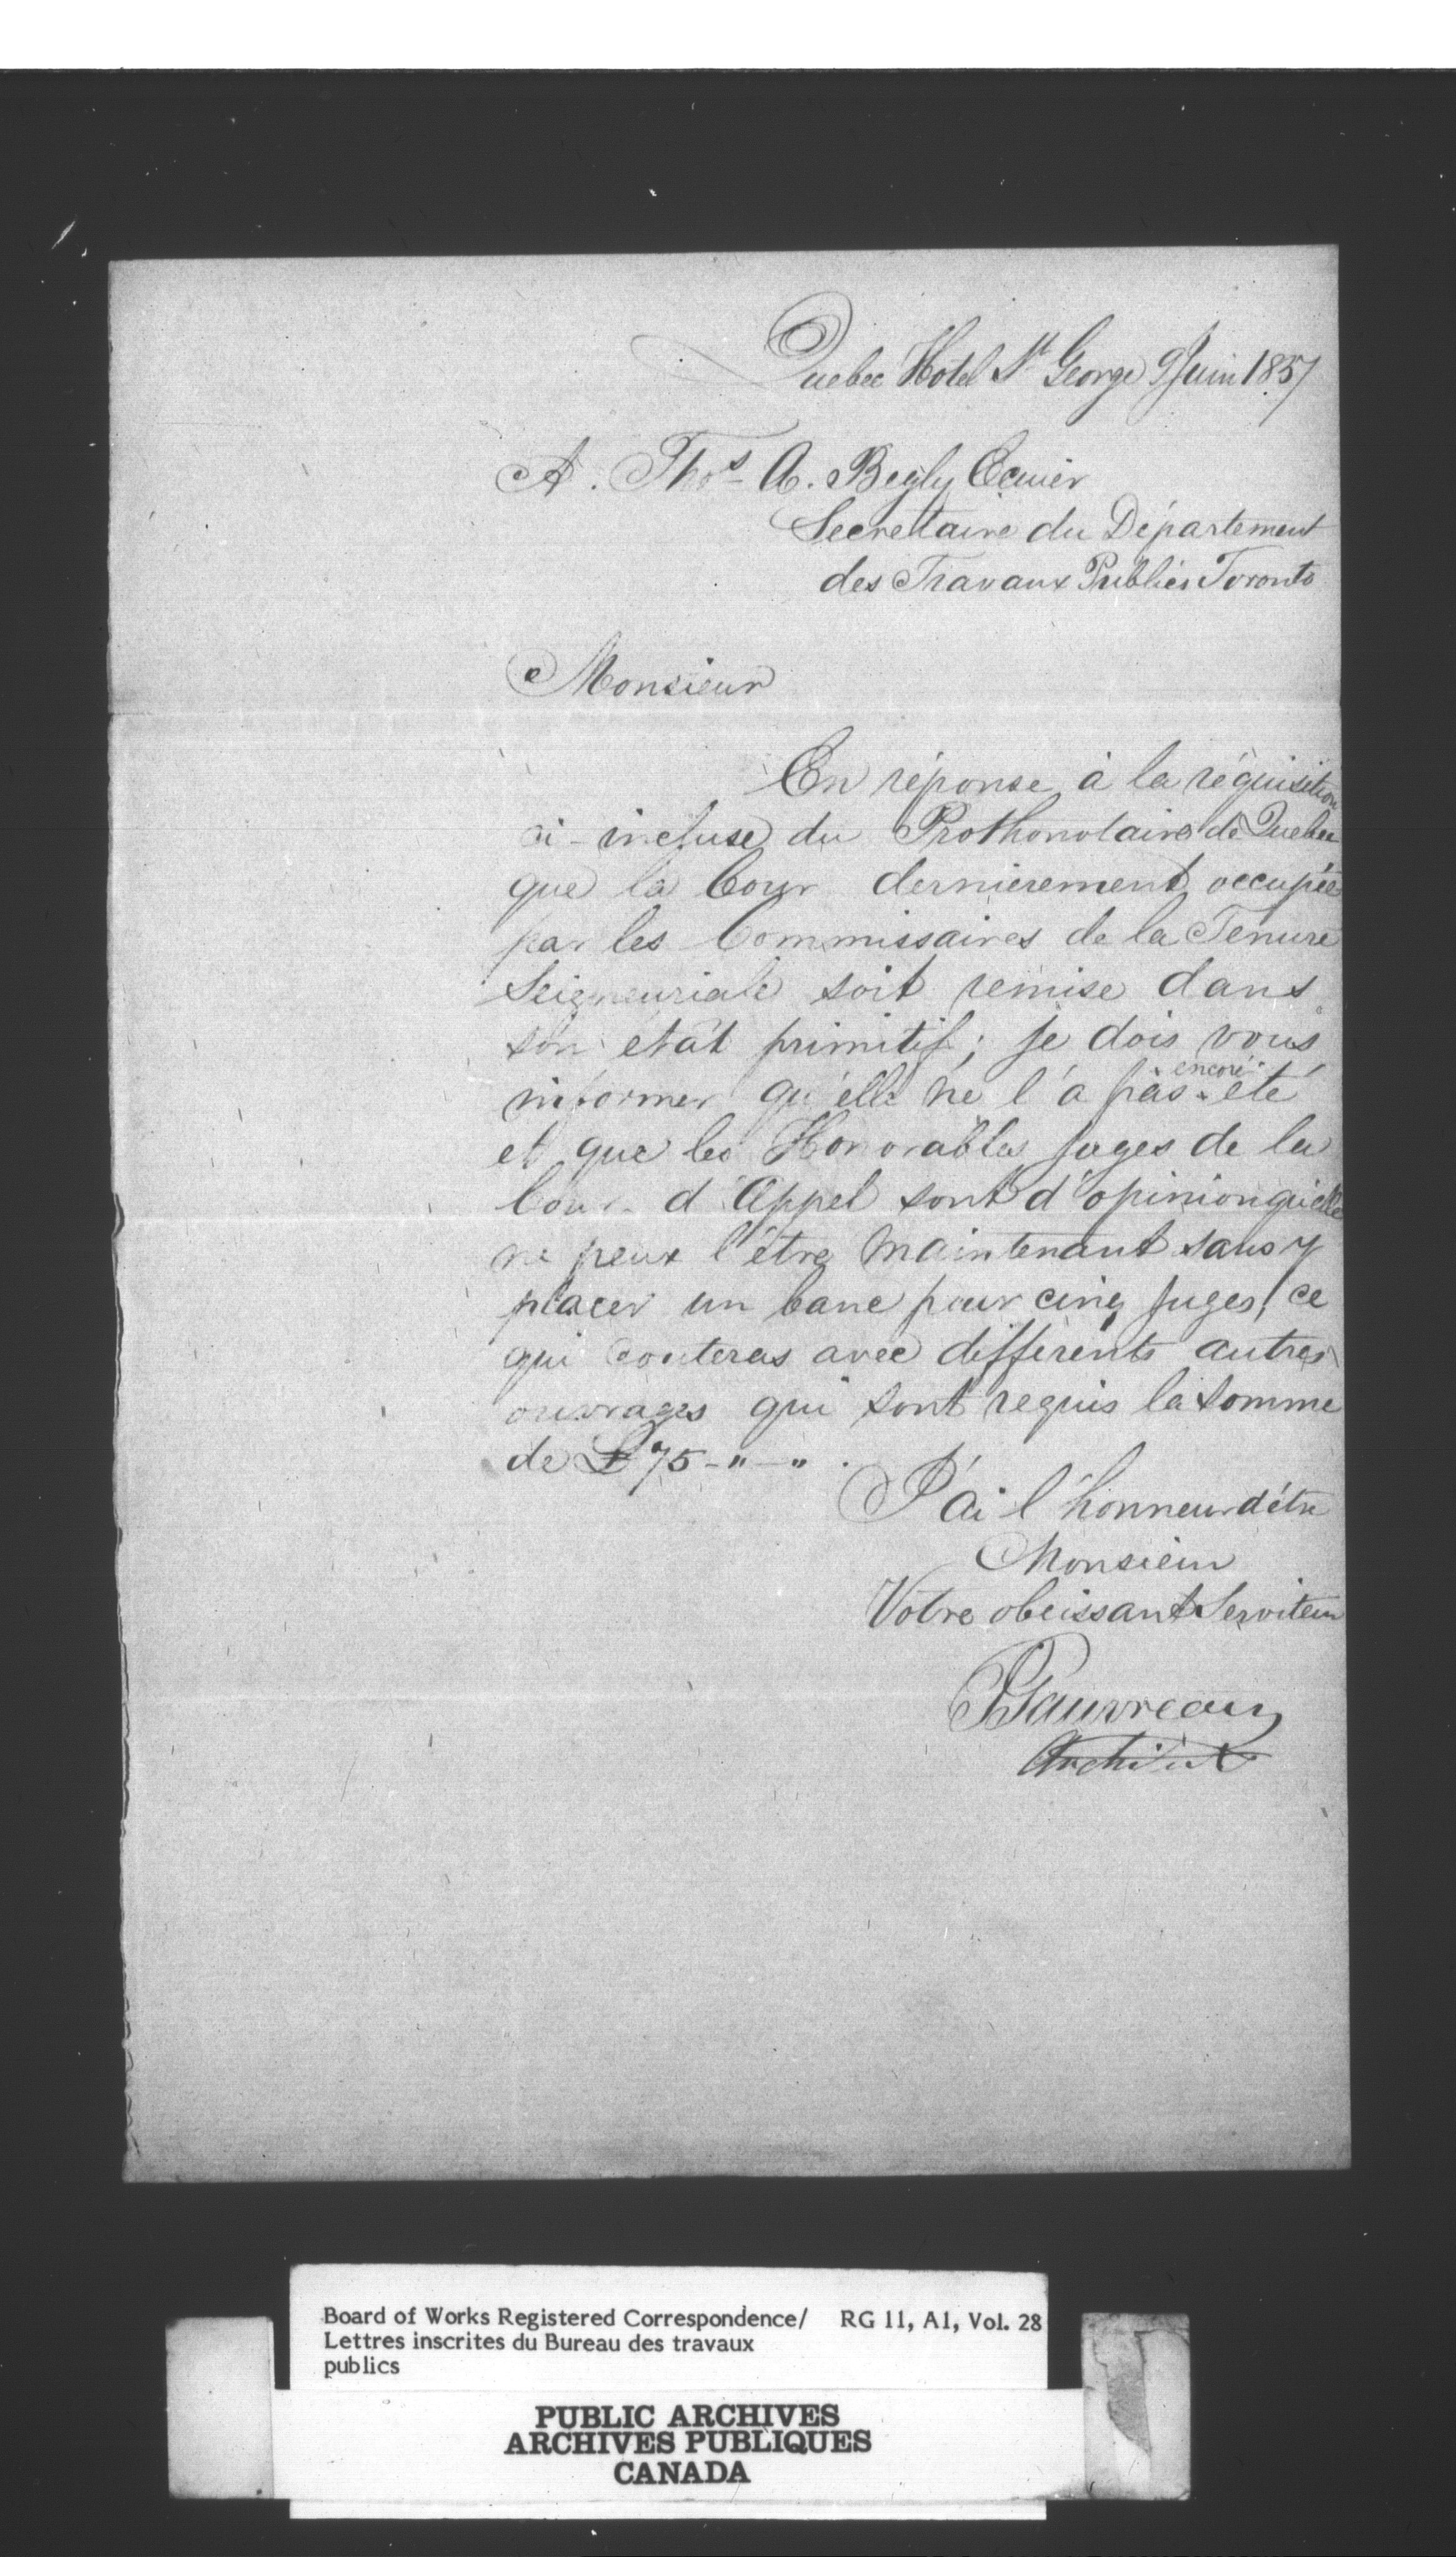 Quebec Hotel St George 9 Juin 1857
A. Thos A. Begly Ecuier
Secretaire du Département
des Travaux Publics Toronto
Monsieur
En réponse à la réquisition
ci-incluse du Prothonotaire de Quebec
que la Cour dernierement occupée
par les Commissaires de la Tenure
Seigneuriale soit remise dans
son état primitif; je dois vous
informer qu'elle ne l'a pas encore été
et que les Honorables Juges de la
Cour d'Appel sont d'opinion qu'elle
ne peux l'être maintenant sans y
placer un banc pour cinq Juges, ce
qui couteras avec différents autres
ouvrages qui sont requis la somme
de £75-"-".
J'ai l'honneur d'étre
Monsieur
Votre obeissant Serviteur
P Gauvreau
Architect
Board of Works Registered Correspondence/ RG 11, A1, Vol. 28
Lettres inscrites du Bureau des travaux
publics
PUBLIC ARCHIVES
ARCHIVES PUBLIQUES
CANADA